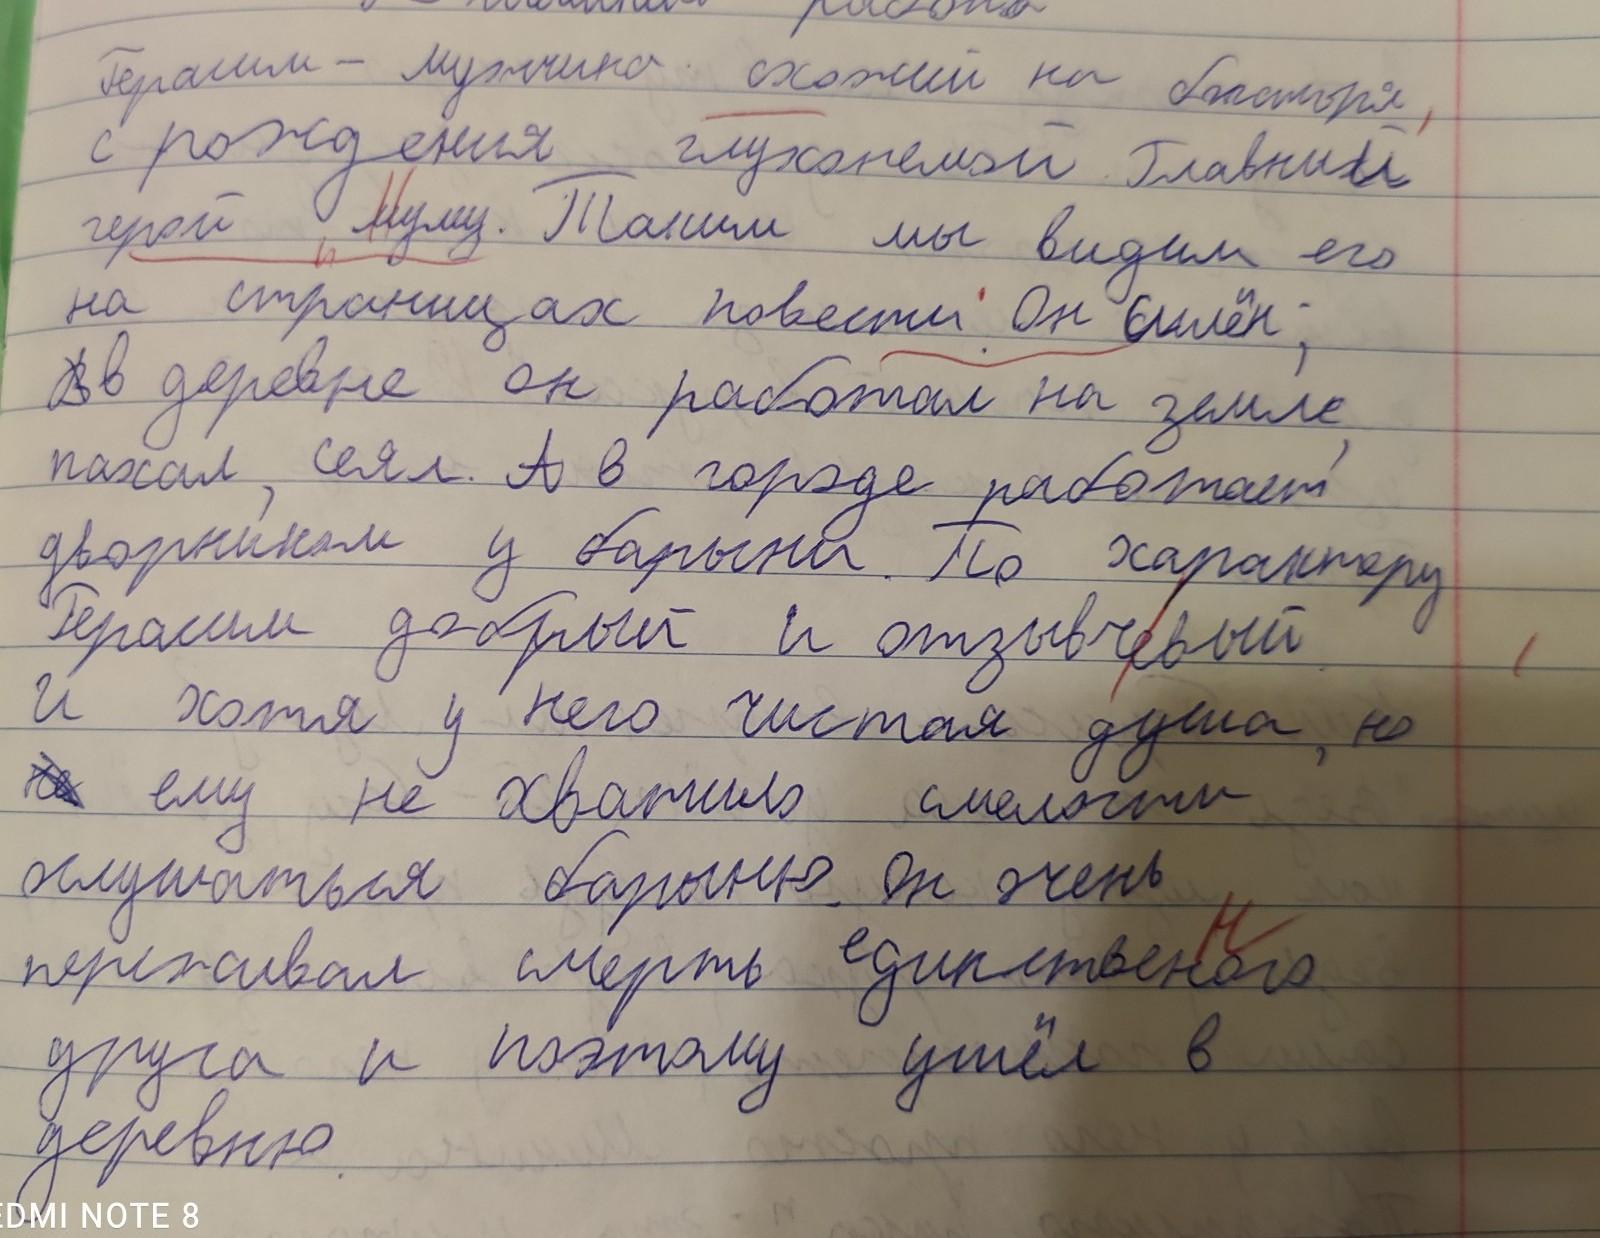 работа
Герасим - мужчина схожий на богатыря,
с рождения глухонемой. Главный
герой "Муму". Таким мы видим его
на страницах повести. Он силён;
в деревне он работал на земле,
пахал, сеял. А в городе работает
дворником у барыни. По характеру
Герасим добрый и отзывчевый.
И хотя у него чистая душа, но
ему не хватило смелости
ослушаться барыню. Он очень
переживал смерть единственого
друга и поэтому ушёл в
деревню.
REDMI NOTE 8